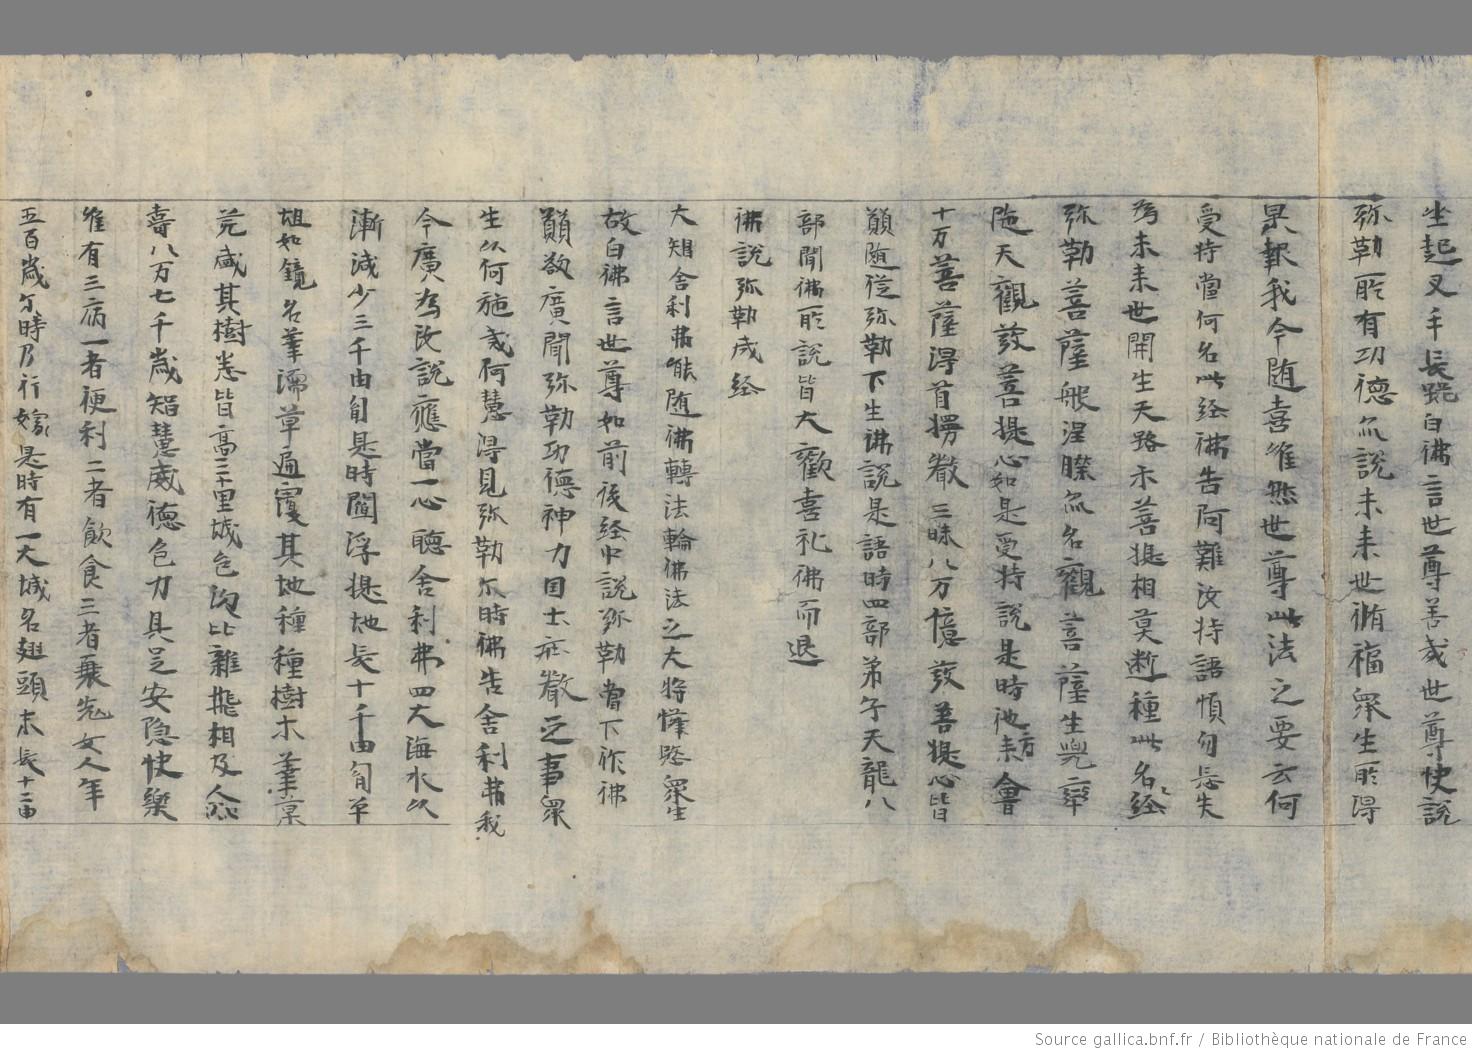 坐起叉手長跪白佛言世尊善哉世尊快說
弥勒所有功德尒說未来世脩福衆生所得
果報我今随喜唯然世尊此法之要云何
受持當何名此経佛告阿難汝持語慎勿忘失
為未来世開生天路示菩提相莫断種此名経
弥勒菩薩般涅槃尒名觀菩薩生兜率
陁天觀發菩提心如是受持說是時他方来會
十万菩薩得首楞嚴三昧八万億發菩提心皆
願随従弥勒下生佛說是語時四部弟子天龍八
部聞佛所說皆大歡喜礼佛而退
佛說弥勒成経
大智舎利弗能随佛轉法輪佛法之大将憐愍衆生
故白佛言世尊如前後経中說弥勒當下作佛
願欲廣聞弥勒功德神力国土庄嚴之事衆
生以何施戒何慧得見弥勒尒時佛告舎利弗我
今廣為汝說應當一心聴舎利弗四大海水以
漸減少三千由旬是時閻浮提地長十千由旬平
坦如鏡名華濡草遍覆其地種種樹木華菓
茂盛其樹悉皆高三十里城邑次比雞飛相及人
壽八万七千歳智慧威德色力具足安隐快樂
唯有三病一者便利二者飲食三者衰老女人年
五百歳尒時乃行嫁是時有一大城名翅頭末長十二由